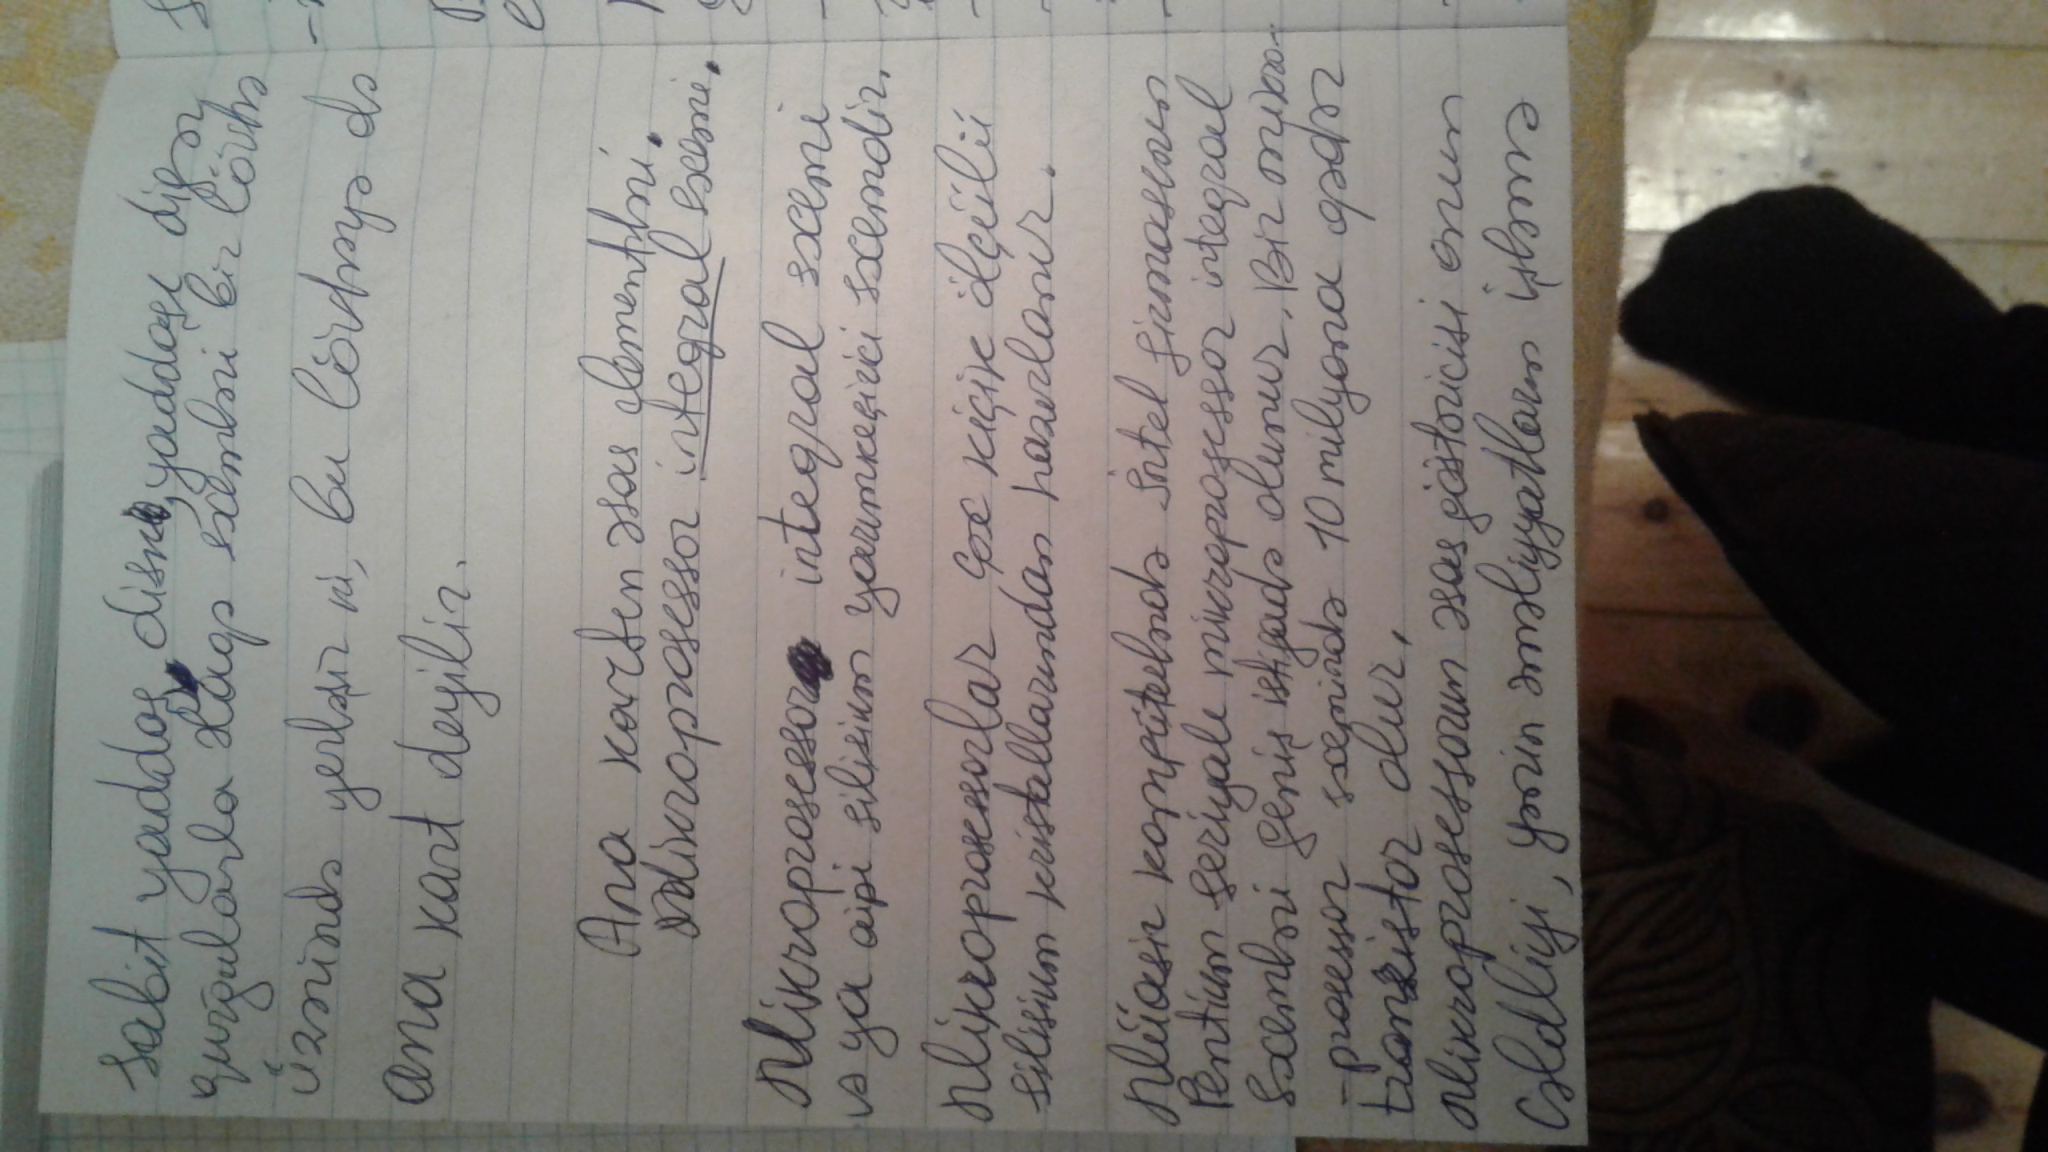 Sabit yaddaş, disk, yaddaşı digər
qurğularla əlaqə sxemləri bir lövhə
üzərində yerləşir ki, bu lövhəyə də
ana kart deyilir.
Ana kartın əsas elementləri.
Mikroprosessor inteqral sxemi.
Mikroprosessor inteqral sxemi
və ya çipi silisium yarımkeçirici sxemdir.
Mikroprosessorlar çox kiçik ölçülü
silisium kristallarından hazırlanır.
Müasir kompüterlərdə İntel firmasının
Pentium seriyalı mikroprosessor inteqral
sxemləri geniş istifadə olunur. Bir mikro-
-prosessor sxemində 10 milyona qədər
tranzistor olur.
Mikroprosessorun əsas göstəricisi onun
cəldliyi, yəni əməliyyatların işləmə